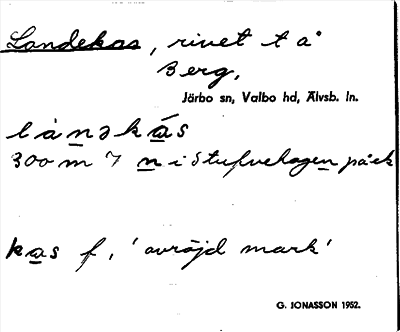 Landekas, rivet t å
Berg,
Järbo sn, Valbo hd, Älvsb. ln.
lànəkás
300 m 7 n i Stufvehagen på ek
kas f, 'avröjd mark'
G. JONASSON 1952.